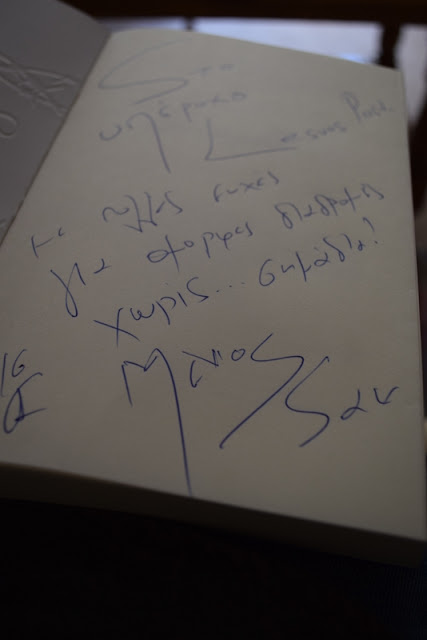 Στο
υπέροχο
Lesvos Post.
με πολλές ευχές
για όμορφες διαδρομές
χωρίς... σημάδια!
16